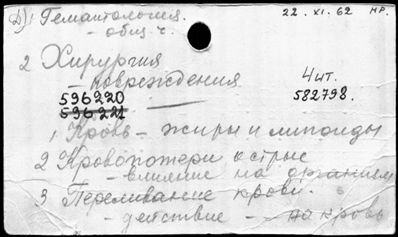 Д) Гематология. 22.XI.62 НР.
- общ. ч.
2 Хирургия
- повреждения 4 шт.
596220 — 582798.
596221
1 Кровь - жиры и липоиды
2 Кровопотери острые
- влияние на организм
3 Переливание крови.
- действие - на кровь